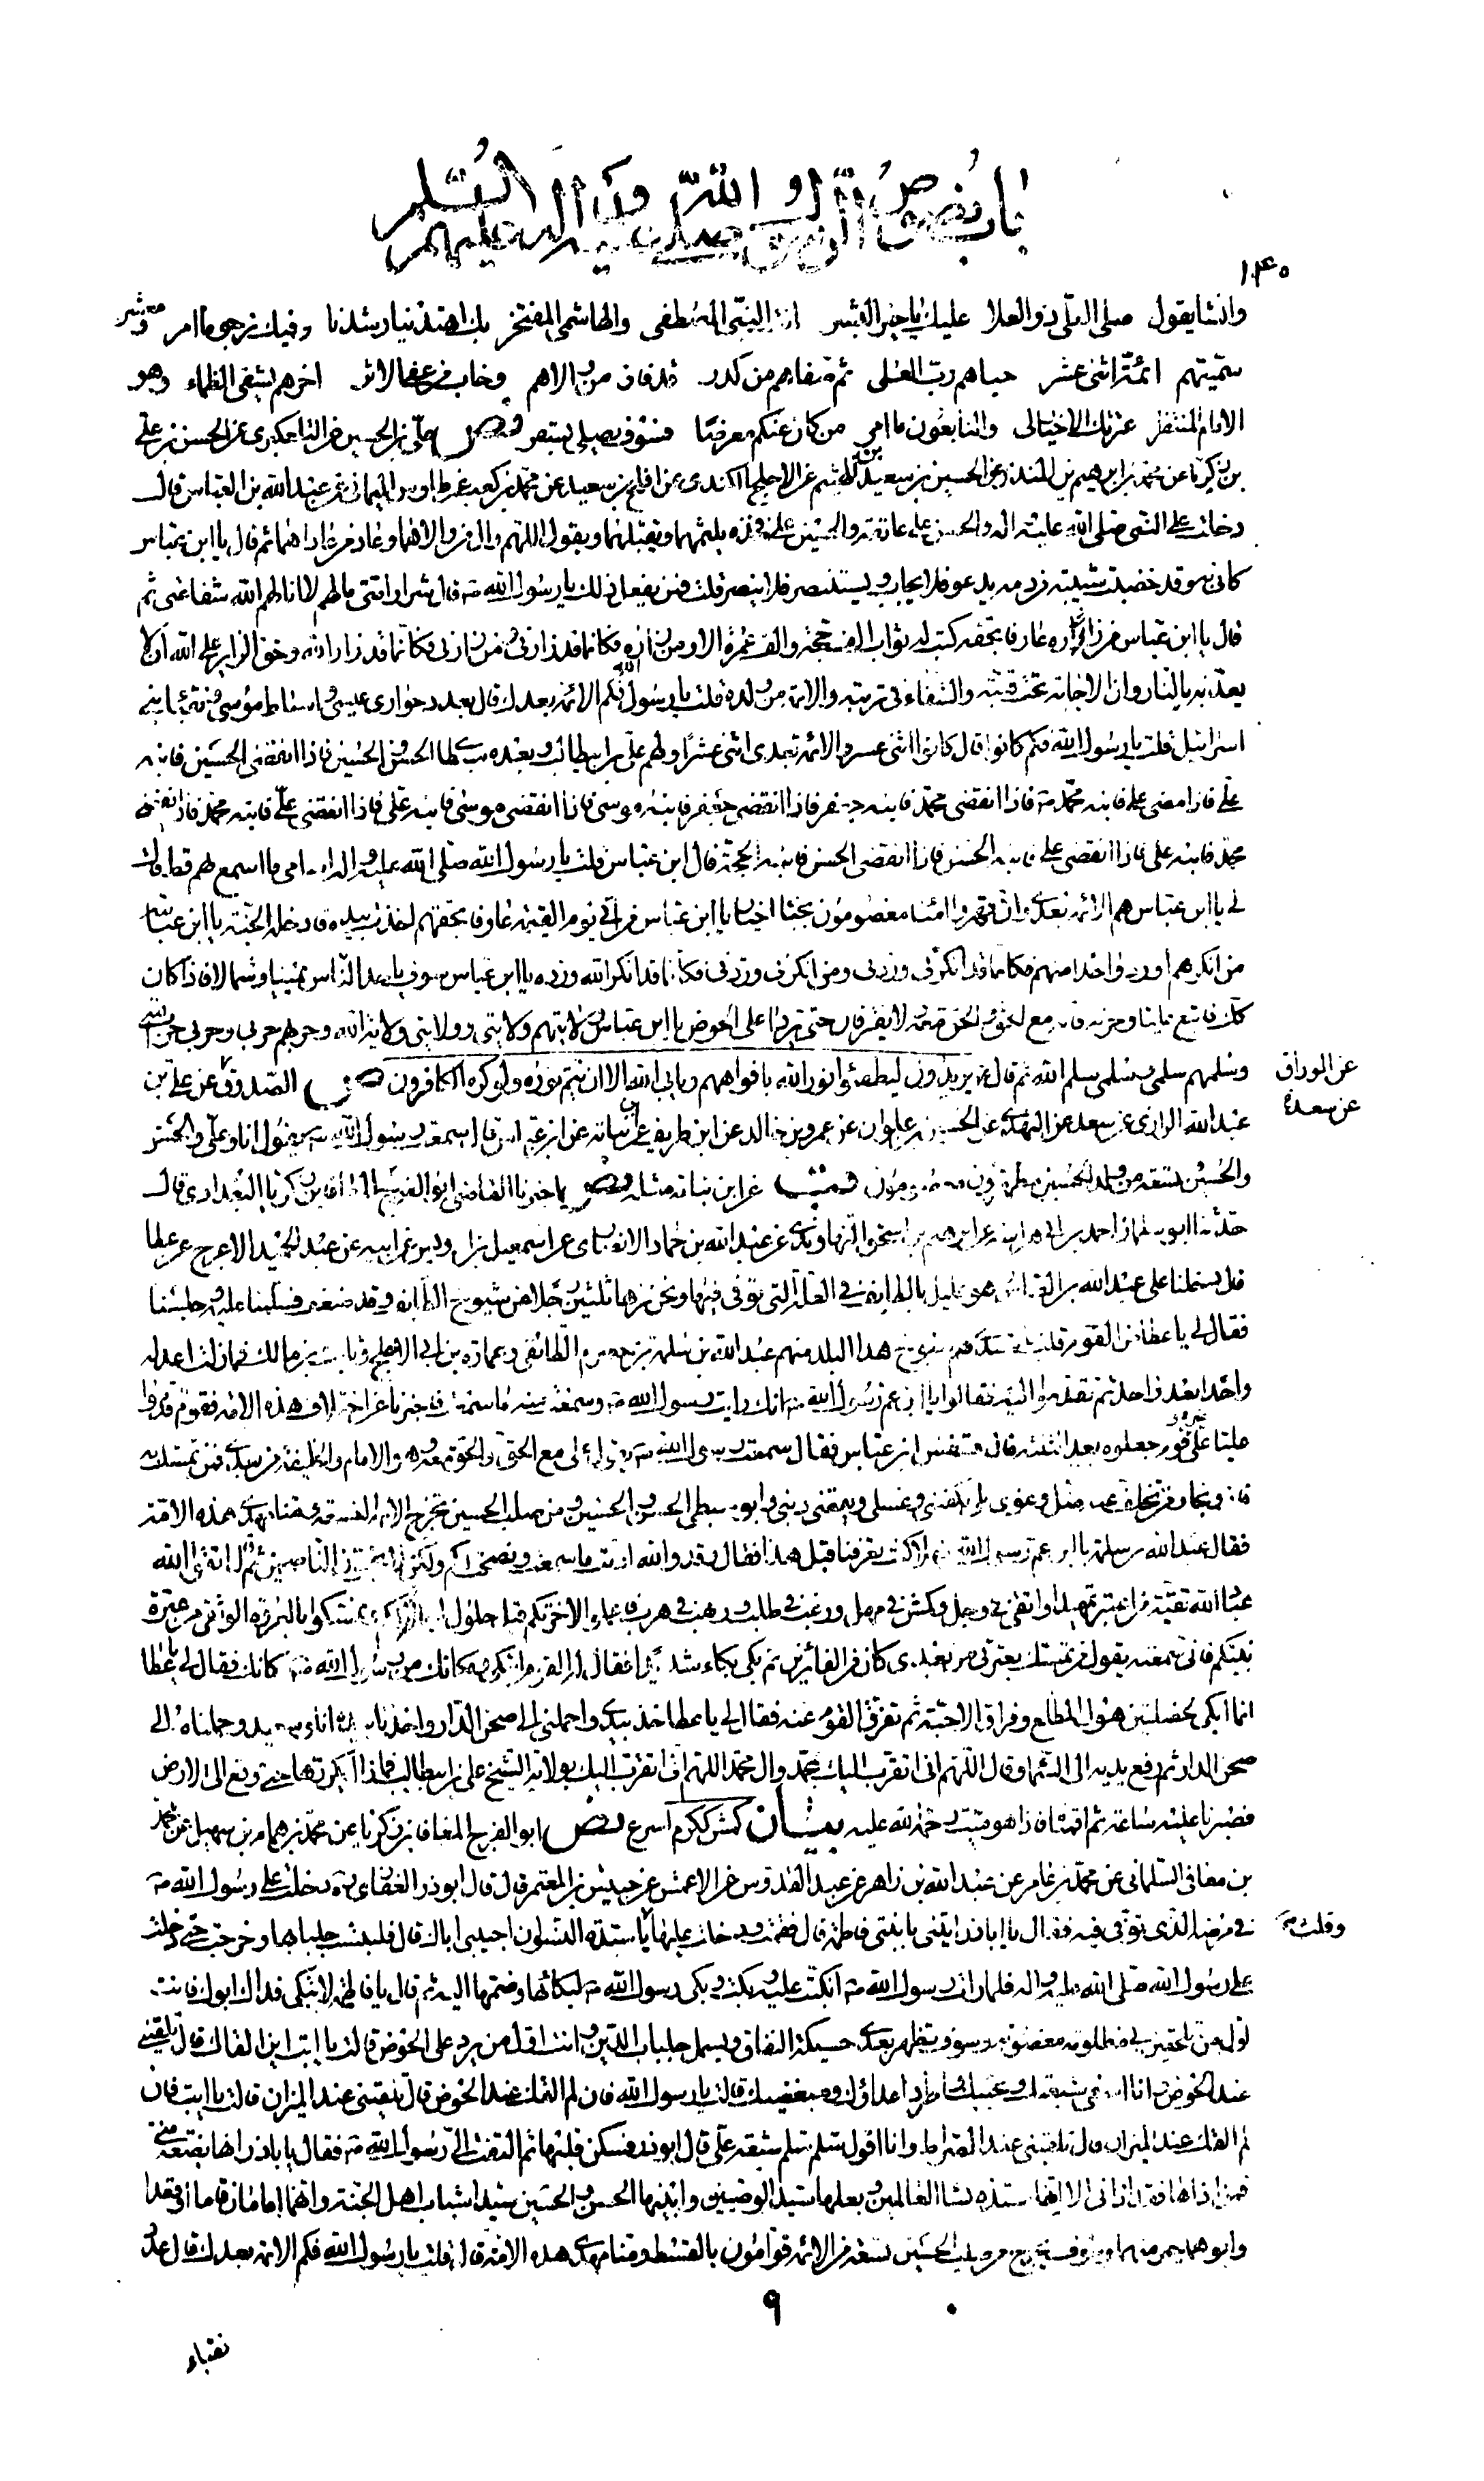 باب نصوص الله و الرسول صلى الله عليهم
١٤٠
وانشا يقول صلى العلي ذو العلا عليك يا خير البشر انت النبي المصطفى والهاشمي المفتخر بك اهتدينا رشدنا وفيك نرجو ما امر ومعشر
سميتهم ائمة اثنى عشر حباهم رب العلى ثم صفاهم من كدر قد فاز من والاهم وخاب من عفا الاثر اخرهم يشفى الظماء وهو
الامام المنتظر عترتك الاخيار لى والتابعون ما امر من كان عنكم معرضا فسوف يصلى بسقر نص علي بن الحسين عن التلعكبرى عن الحسن بن علي
بن زكريا عن محمد بن ابراهيم بن المنذر عن الحسين بن سعيد بن الهيثم عن الاجلح الكندى عن افلح بن سعيد عن محمد بن كعب عن طاوس اليمانى عن عبد الله بن العباس قال
دخلت على النبي صلى الله عليه واله والحسن على عاتقه والحسين على فخذه يلثمهما ويقبلهما ويقول اللهم وال من والاهما وعاد من عاداهما ثم قال يا ابن عباس
كانى به وقد خضبت شيبته من دمه يدعو فلا يجاب ويستنصر فلا ينصر قلت فمن يفعل ذلك يا رسول الله ص قال شرار امتى ما لهم لا انالهم الله شفاعتى ثم
قال يا ابن عباس من زاره عارفا بحقه كتب له ثواب الف حجة والف عمرة الا ومن زاره فكانما قد زارنى ومن زارنى فكانما قد زار الله وحق الزاير على الله ان لا
يعذبه بالنار وان الاجابة تحت قبته والشفاء فى تربته والائمة من ولده قلت يا رسول الله فكم الائمة بعدك قال بعدد حوارى عيسى واسباط موسى ونقباء بنى
اسرائيل قلت يا رسول الله فكم كانوا قال كانوا اثنى عشر والائمة بعدى اثنى عشر اولهم على بن ابيطالب وبعده سبطاى الحسن والحسين فاذا انقضى الحسين فابنه
على فاذا مضى على فابنه محمد فاذا انقضى محمد فابنه جعفر فاذا انقضى جعفر فابنه موسى فاذا انقضى موسى فابنه على فاذا انقضى على فابنه محمد فاذا انقضى
محمد فابنه على فاذا انقضى على فابنه الحسن فاذا انقضى الحسن فابنه الحجة قال ابن عباس قلت يا رسول الله صلى الله عليه واله اسامى ما اسمع بهم قط قال
لى يا ابن عباس هم الائمة بعدى وان قهروا امناء معصومون نجباء اخيار يا ابن عباس من اتى يوم القيمة عارفا بحقهم اخذت بيده فادخله الجنة يا ابن عباس
من انكرهم او رد واحدا منهم فكانما قد انكرنى وردنى ومن انكرنى وردنى فكانما قد انكر الله ورده يا ابن عباس سوف ياخذ الناس يمينا وشمالا فاذا كان
كذلك فاتبع عليا وحزبه فانه مع الحق والحق معه لا يفترقان حتى يردا على الحوض يا ابن عباس ولايتهم ولايتى وولايتى ولاية الله وحربهم حربى وحربى حرب الله
وسلمهم سلمى وسلمى سلم الله ثم قال يريدون ليطفئوا نور الله بافواههم ويابى الله الا ان يتم نوره ولو كره الكافرون نص الصدوق عن علي بن
عن الوراق
عن سعد
عبد الله الوراق عن سعد عن النهدى عن الحسين بن علوان عن عمرو بن خالد عن ابن طريف عن ابن نباته عن ابن عباس قال سمعت رسول الله ص يقول انا وعلى والحسن
والحسين وتسعة من ولد الحسين مطهرون معصومون عن ابن نباته مثله نص اخبرنا القاضى ابو الفرج المعافا بن زكريا البغدادى قال
حدثنا ابو سلمان احمد بن ابى هراسه عن ابراهيم بن اسحق النهاوندى عن عبد الله بن حماد الانصارى عن اسمعيل بن ابى اويس عن ابيه عن عبد الحميد الاعرج عن عطا
قال دخلنا على عبد الله بن العباس وهو عليل بالطايف فى العلة التى توفى فيها ونحن زهاء ثلثين رجلا من شيوخ الطايف وقد ضعف فسلمنا عليه وجلسنا
فقال لى يا عطا من القوم قلت يا سيدى هم شيوخ هذا البلد منهم عبد الله بن سلمة بن حصرم الطائفى وعمارة بن ابى الاجلح وثابت بن مالك فما زلت اعد له
واحدا بعد واحد ثم تقدموا اليه فقالوا يا ابن عم رسول الله انك رايت رسول الله ص وسمعت منه ما سمعت فاخبرنا عن اختلاف هذه الامة فقوم قدموا
عليا على غيره وقوم جعلوه بعد الثلثة قال فتنفس ابن عباس فقال سمعت رسول الله ص يقول على مع الحق والحق معه وهو الامام والخليفة من بعدى فمن تمسك به
فاز ونجا ومن تخلف عنه ضل وغوى بلى يكفننى ويغسلنى ويقضى دينى وابو سبطى الحسن والحسين ومن صلب الحسين تخرج الائمة التسعة ومنا مهدى هذه الامة
فقال عبد الله بن سلمة يا ابن عم رسول الله ص الا كنت تعرفنا قبل هذا فقال قد والله اديت ما سمعت ونصحت لكم ولكن لا تحبون الناصحين ثم قال اتقوا الله
عباد الله تقية من اعتبر تمهيدا واتقى فى وجل وكمش فى مهل ورغب فى طلب ورهب فى هرب فاعملوا لاخرتكم قبل حلول اجالكم وتمسكوا بالعروة الوثقى من عترة
نبيكم فانى سمعته يقول من تمسك بعترتى من بعدى كان من الفائزين ثم بكى بكاء شديدا فقال له القوم اتبكى ومكانك من رسول الله ص مكانك فقال لى يا عطا
انما ابكى لخصلتين هول المطلع وفراق الاحبة ثم تفرق القوم عنه فقال لى يا عطا خذ بيدى واحملنى الى صحن الدار فاخذنا بيده انا وسعيد وحملناه الى
صحن الدار ثم رفع يديه الى السماء وقال اللهم انى اتقرب اليك بمحمد وال محمد اللهم انى اتقرب اليك بولاية الشيخ على بن ابيطالب فما زال يكررها حتى وقع الى الارض
فصبرنا عليه ساعة ثم اقمناه فاذا هو ميت رحمة الله عليه بيان كمش ككرم اسرع نص ابو الفرج المعافا بن زكريا عن محمد بن همام بن سهيل عن محمد
بن معافى السلمانى عن محمد بن عامر عن عبد الله بن زاهر عن عبد القدوس عن الاعمش عن حبيش بن المعتمر قال قال ابو ذر الغفارى ره دخلت على رسول الله ص
فى مرضه الذى توفى فيه فقال يا ابا ذر ايتنى بابنتى فاطمة قال فقمت ودخلت عليها يا سيدة النسوان اجيبى اباك قال فلبست جلبابها وخرجت حتى دخلت
وقلت
على رسول الله صلى الله عليه واله فلما رات رسول الله ص انكبت عليه وبكت وبكى رسول الله ص لبكائها وضمها اليه ثم قال يا فاطمة لا تبكى فداك ابوك فانت
اول من تلحقين بى مظلومة مغصوبة وسوف يظهر بعدى حسيكة النفاق ويسمل جلباب الدين وانت اول من يرد على الحوض قالت يا ابت اين القاك قال تلقينى
عند الحوض وانا اسقى شيعتك ومحبيك واطرد اعداك ومبغضيك قالت يا رسول الله فان لم القك عند الحوض قال تلقينى عند الميزان قالت يا ابت فان
لم القك عند الميزان قال تلقينى عند الصراط وانا اقول سلم سلم شيعة على قال ابو ذر فسكن قلبها ثم التفت الى رسول الله ص فقال يا باذر انها بضعة منى
فمن اذاها فقد اذانى الا انها سيدة نساء العالمين وبعلها سيد الوصيين وابنيها الحسن والحسين سيدا شباب اهل الجنة وانهما امامان قاما او قعدا
وابوهما خير منهما وسوف يخرج من صلب الحسين تسعة من الائمة قوامون بالقسط ومنا مهدى هذه الامة قال قلت يا رسول الله فكم الائمة بعدك قال عدد
٩
نقباء